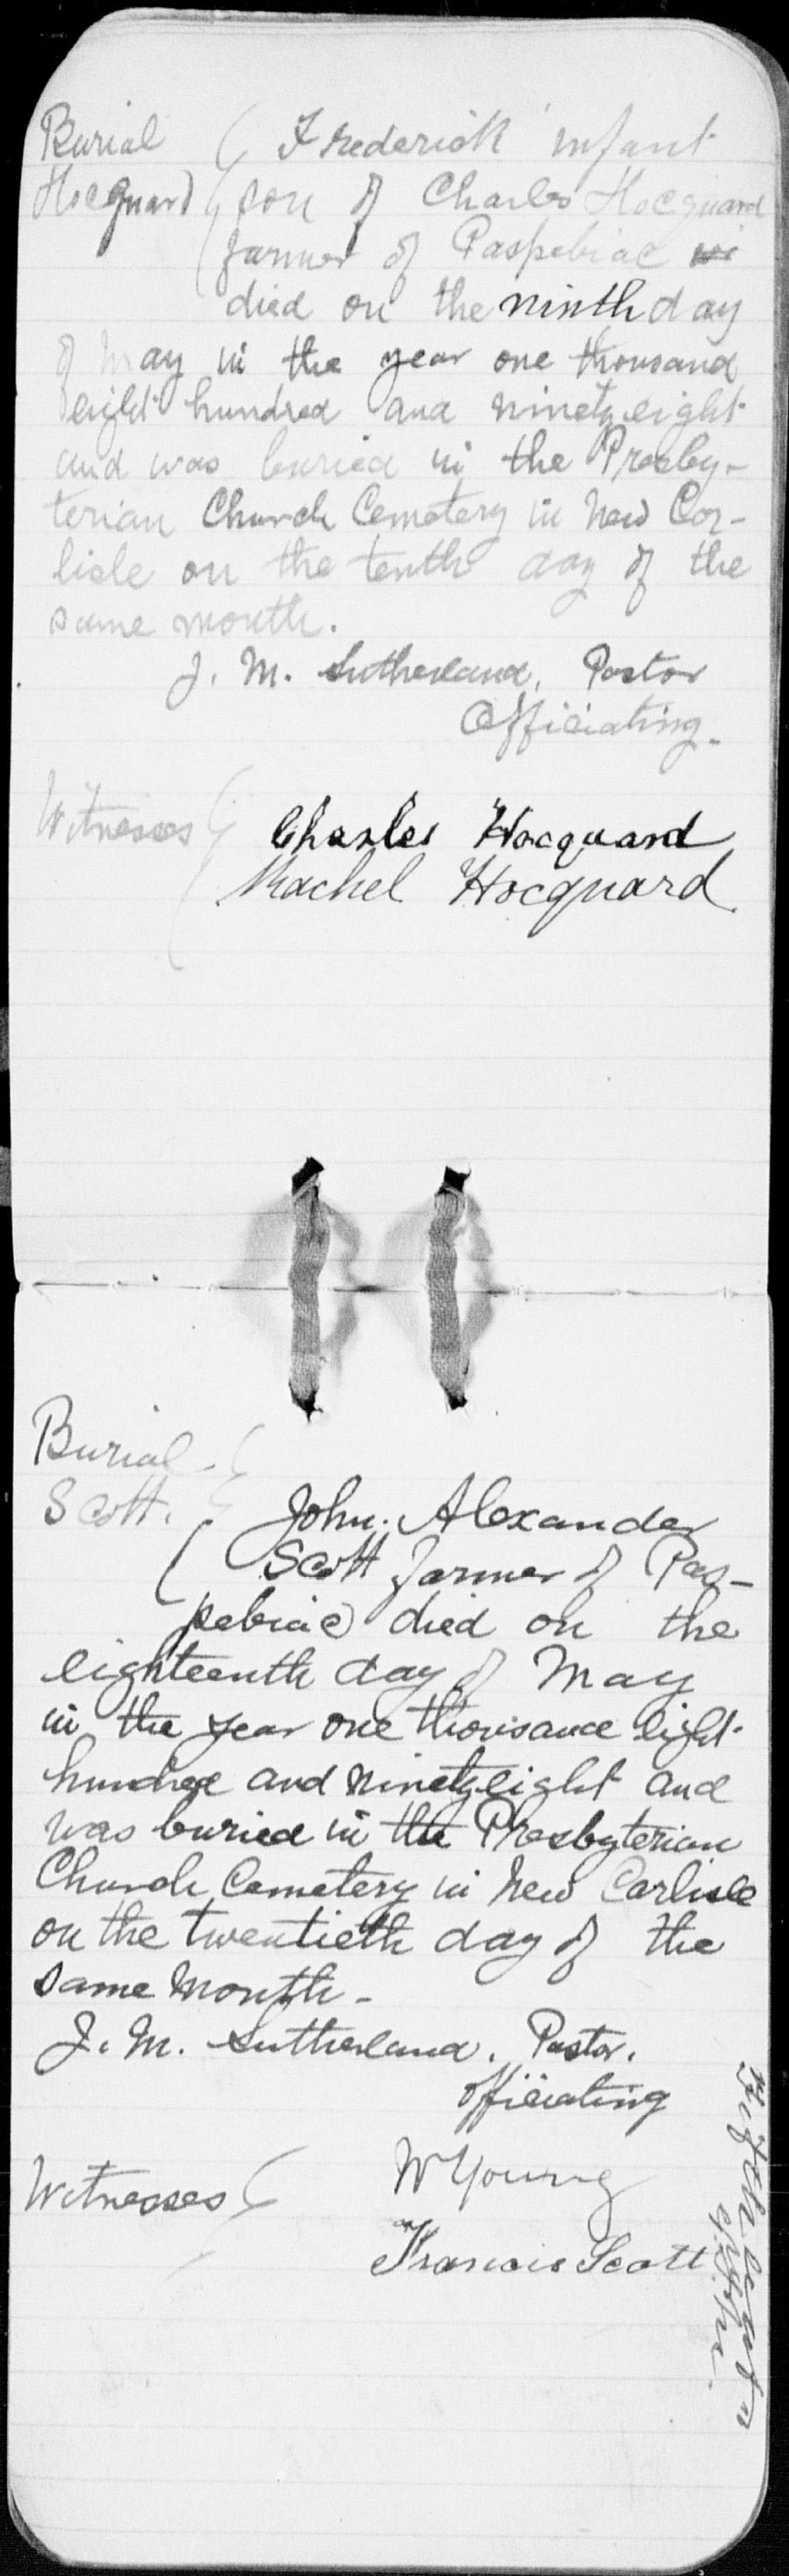 Burial ( Frederick infant
Hocquard ( son of Charles Hocquard
farmer of Paspebiac
died on the ninth day
of May in the year one thousand
eight hundred and ninety eight
and was buried in the Presby-
terian Church Cemetery in New Car-
lisle on the tenth day of the
same month.
J. M. Sutherland, Pastor
Officiating.
Witnesses ( Charles Hocquard
Rachel Hocquard
Burial - (
Scott. ( John. Alexander
( Scott farmer of Pas-
pebiac died on the
eighteenth day of May
in the year one thousand eight
hundred and ninety eight and
was buried in the Presbyterian
Church Cemetery in New Carlisle
on the twentieth day of the
same month -
J. M. Sutherland. Pastor.
Officiating
Witnesses ( W Young
Francis Scott